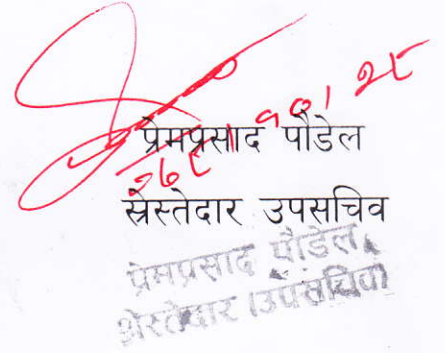 प्रेमप्रसाद पौडेल
स्रेस्तेदार उपसचिव
प्रेमप्रसाद पौडेल
श्रेस्तेदार (उपसचिव)